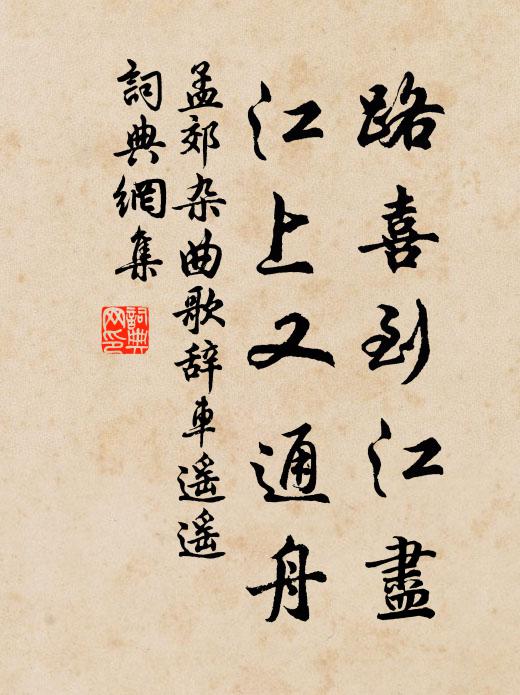 路喜到江盡
江上又通舟
孟郊杂曲歌辞車遥遥
詞典網集
詞典网印